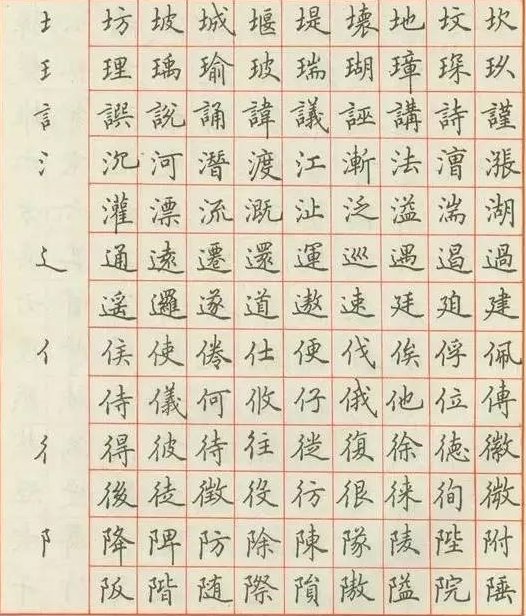 土 坊 坡 城 堰 堤 壞 地 坟 坎
王 理 瑀 瑜 玻 瑞 瑚 璋 琛 玖
訁 譔 說 誦 諱 議 誣 講 詩 謹
氵 沉 河 潛 渡 江 漸 法 漕 漲
灌 漂 流 溉 沚 泛 溢 湍 湖
辶 通 遠 遷 還 運 巡 遇 遏 過
遥 邏 遂 道 遨 速 廷 建
亻 侯 使 倦 仕 便 伐 俟 俘 佩
侍 儀 何 攸 仔 俄 他 位 傳
彳 得 彼 待 往 從 復 徐 德 徽
後 徒 徵 役 彷 很 徠 徇 微
阝 降 陴 防 除 陳 隊 陵 陛 附
阪 階 随 際 隕 隘 院 陲